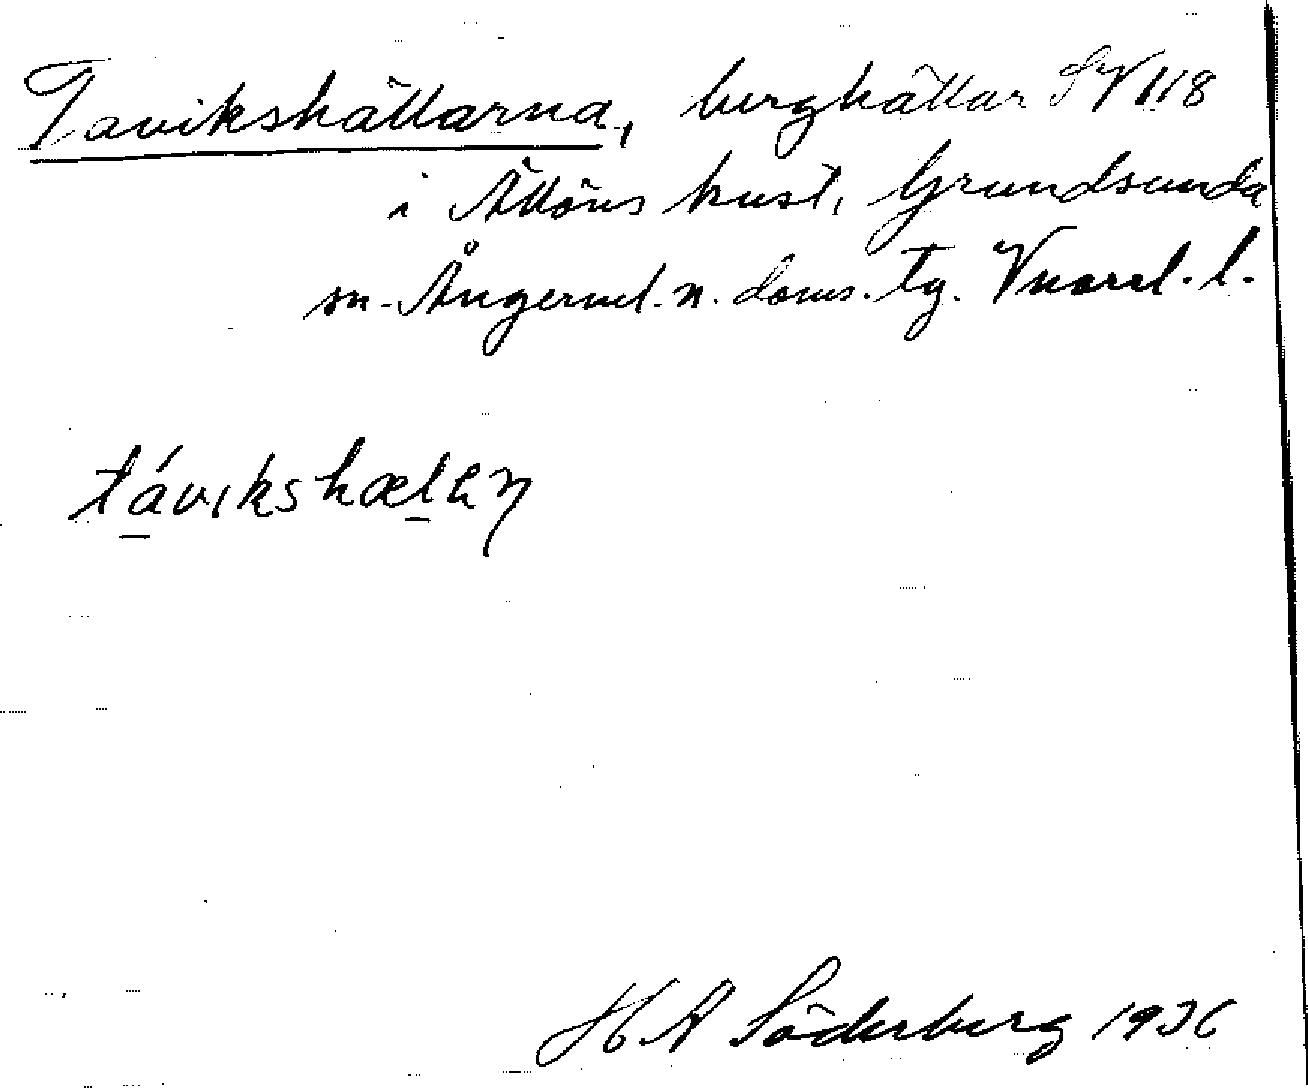 Tavikshällarna, berghällar SV 118
i Ällöns kust, Grundsunda
sn. Ångerml. n. doms. tg. Vnorrl. l.
távikshælan
H A Söderberg 1936